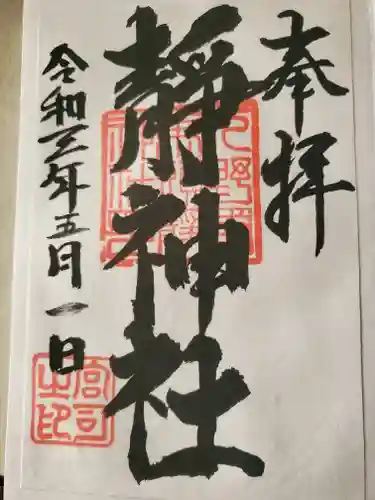 奉拝
靜神社
令和三年五月一日
宮司之印